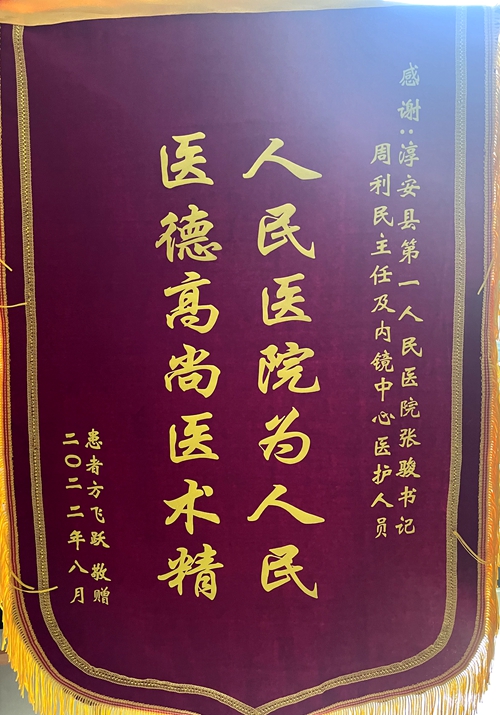 感谢:淳安县第一人民医院张骏书记
周利民主任及内镜中心医护人员
人民医院为人民
医德高尚医术精
患者方飞跃敬赠
二〇二二年八月